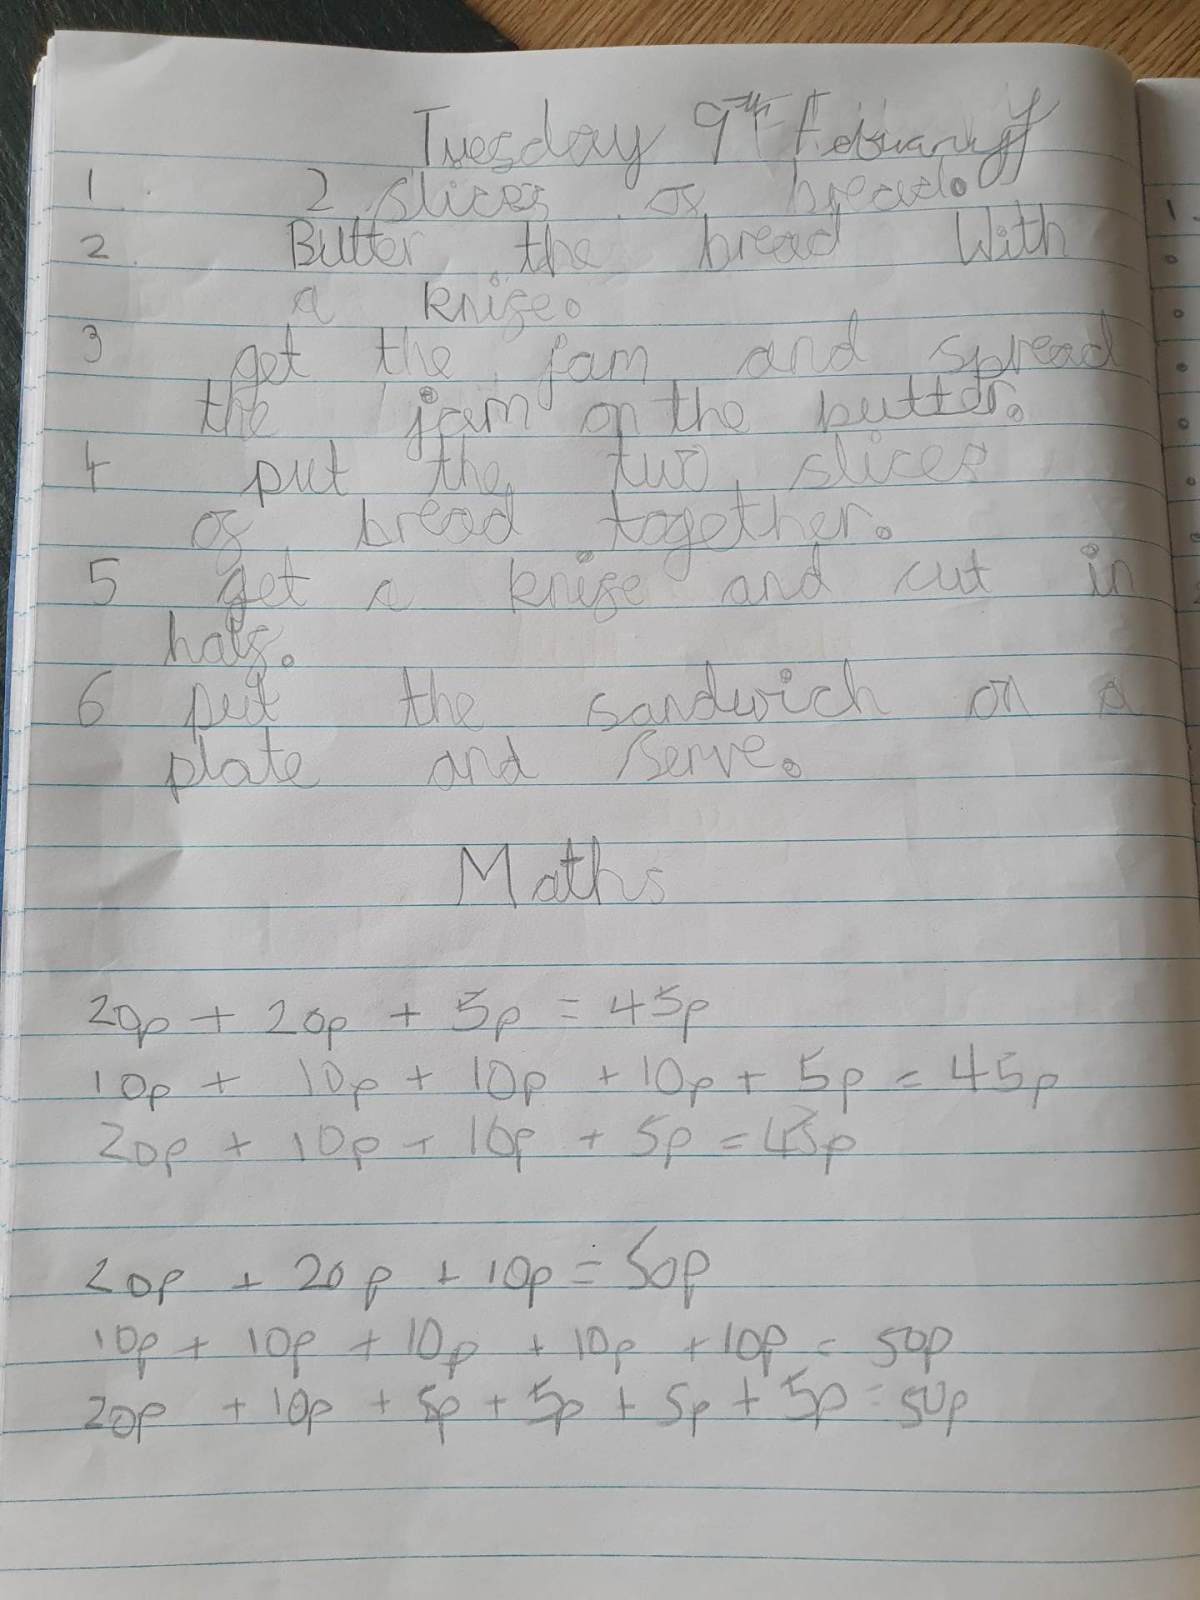 Tuesday 9th February
1 2 slices of bread.
2 Butter the bread With
a knife.
3 get the jam and spread
the jam on the butter.
4 put the two slices
of bread together.
5 get a knife and cut in
half.
6 put the sandwich on a
plate and serve.
Maths
20p + 20p + 5p = 45p
10p + 10p + 10p + 10p + 5p = 45p
20p + 10p + 10p + 5p = 45p
20p + 20p + 10p = 50p
10p + 10p + 10p + 10p + 10p = 50p
20p + 10p + 5p + 5p + 5p + 5p = 50p
1